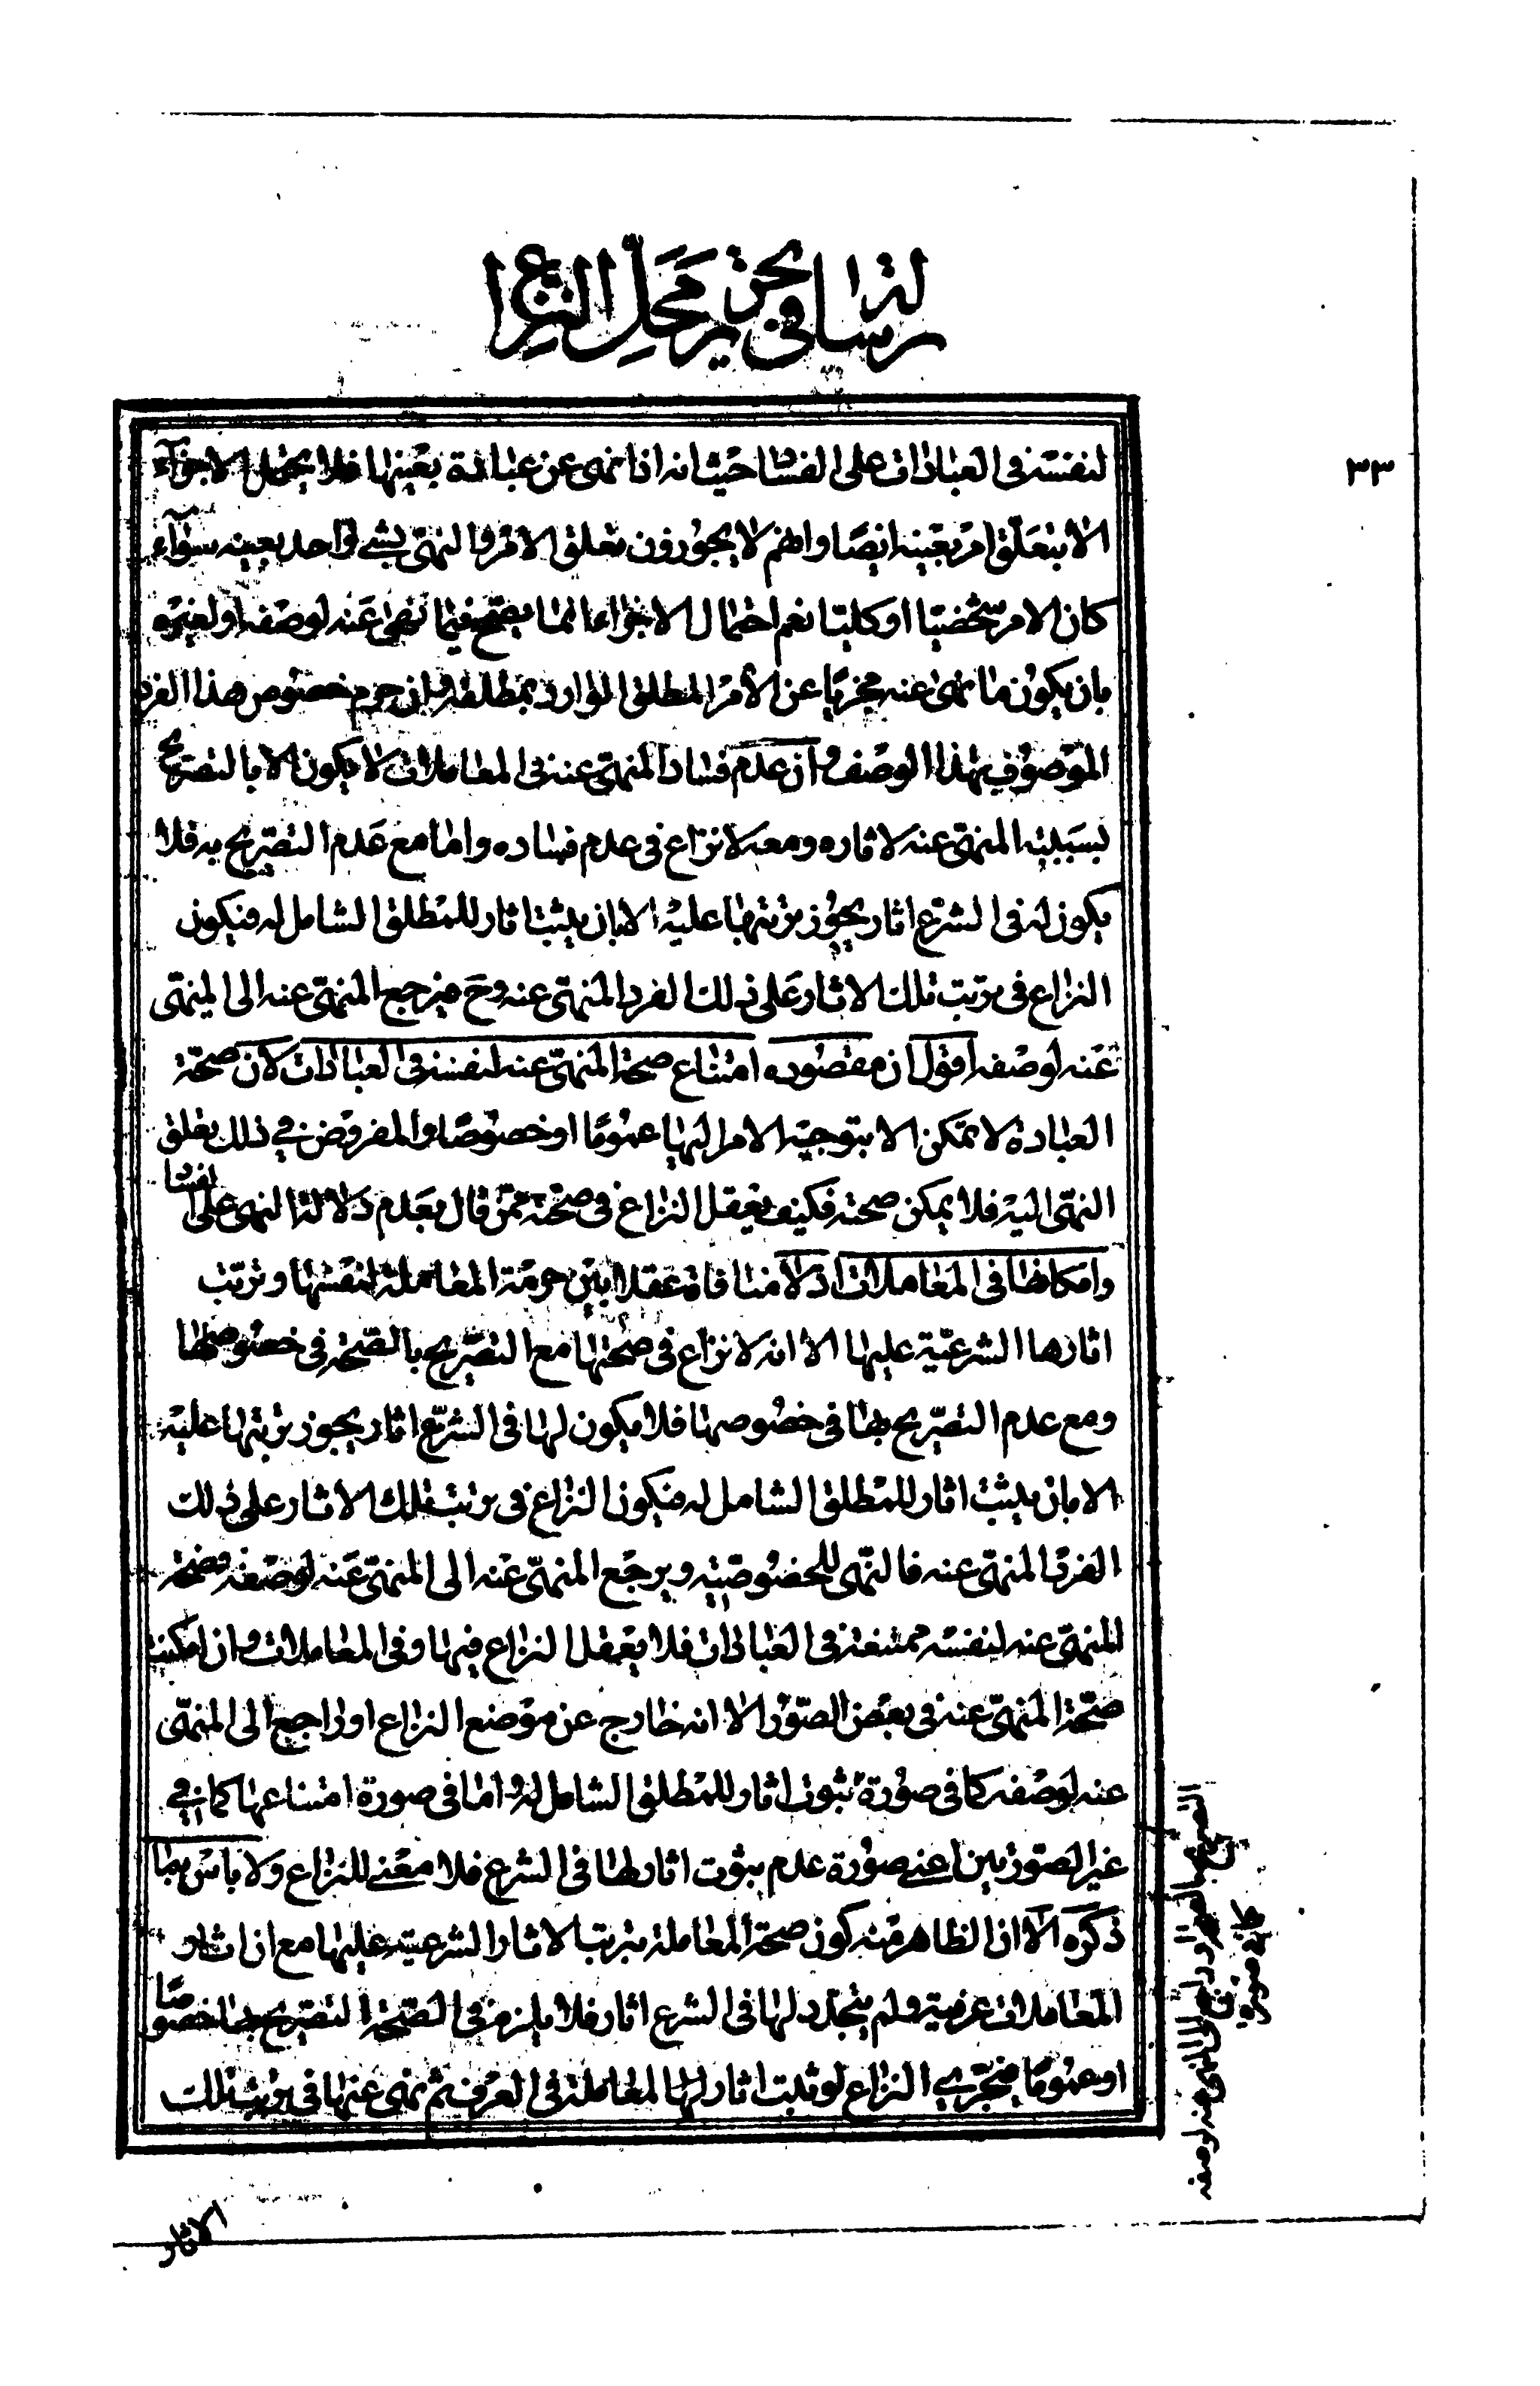 رسالة في تحرير محل النزاع
٣٣
لنفسه في العبادات على الفساد حيث انه اذا نهى عن عبادة بعينها فلا يحتمل الاجزاء
الا بتعلق امر بعينه ايضا وانهم لا يجوزون تعلق الامر والنهى بشئ واحد بعينه سواء
كان الامر شخصيا او كليا نعم احتمال الاجزاء انما يصح فيما نهى عنه لوصفه او لغيره
بان يكون ما نهى عنه مجزيا عن الأمر المطلق الوارد بمطلقه وان حرم خصوص هذا الفرد
الموصوف بهذا الوصف وان عدم فساد المنهى عنه في المعاملات لا يكون الا بالتصريح
بسببية المنهى عنه لاثاره ومعه لا نزاع في عدم فساده واما مع عدم التصريح به فلا
يكون له في الشرع اثار يجوز ترتبها عليه الا بان يثبت اثار للمطلق الشامل له فيكون
النزاع في ترتب تلك الاثار على ذلك الفرد المنهى عنه وح فيرجع المنهى عنه الى المنهى
عنه لوصفه اقول ان مقصوده امتناع صحة المنهى عنه لنفسه في العبادات لان صحة
العبادة لا تمكن الا بتوجيه الامر اليها عموما او خصوصا والمفروض في ذلك تعلق
النهى اليه فلا يمكن صحته فكيف يعقل النزاع في صحته ممن قال بعدم دلالة النهى على الفساد
وامكانها في المعاملات اذ لا منافاة عقلا بين حرمة المعاملة لنفسها وترتب
اثارها الشرعية عليها الا انه لا نزاع في صحتها مع التصريح بالصحة في خصوصها
ومع عدم التصريح بها في خصوصها فلا يكون لها في الشرع اثار يجوز ترتبها عليه
الا بان يثبت اثار للمطلق الشامل له فيكون النزاع في ترتب تلك الاثار على ذلك
الفرد المنهى عنه فالنهى للخصوصية ويرجع المنهى عنه الى المنهى عنه لوصفه وصحة
المنهى عنه لنفسه ممتنعة في العبادات فلا يعقل النزاع فيها وفي المعاملات وان امكنت
صحة المنهى عنه في بعض الصور الا انه خارج عن موضع النزاع او راجع الى المنهى
عنه لوصفه كما في صورة ثبوت اثار للمطلق الشامل له واما في صورة امتناعها كما في
غير الصورتين اعنى صورة عدم ثبوت اثار لها في الشرع فلا معنى للنزاع ولا باس بما
ذكره الا ان الظاهر منه كون صحة المعاملة بترتب الاثار الشرعية عليها مع ان اثار
المعاملات عرفية ولم يتجدد لها في الشرع اثار فلا يلزم في الصحة التصريح بها خصوصا
او عموما فيجرى النزاع لو ثبت اثار لها المعاملة في العرف ثم نهى عنها في ترتب تلك
الاثار